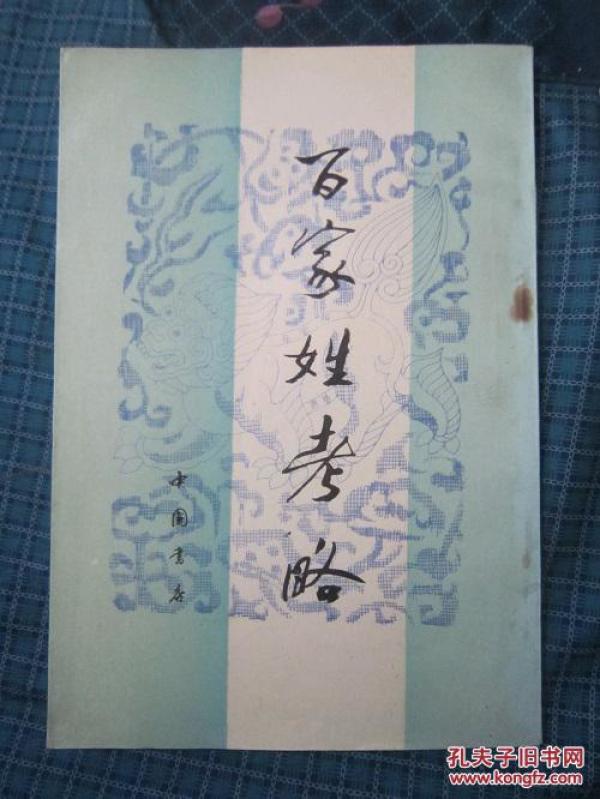 百家姓考略
中国书店
孔夫子旧书网
www.kongfz.com